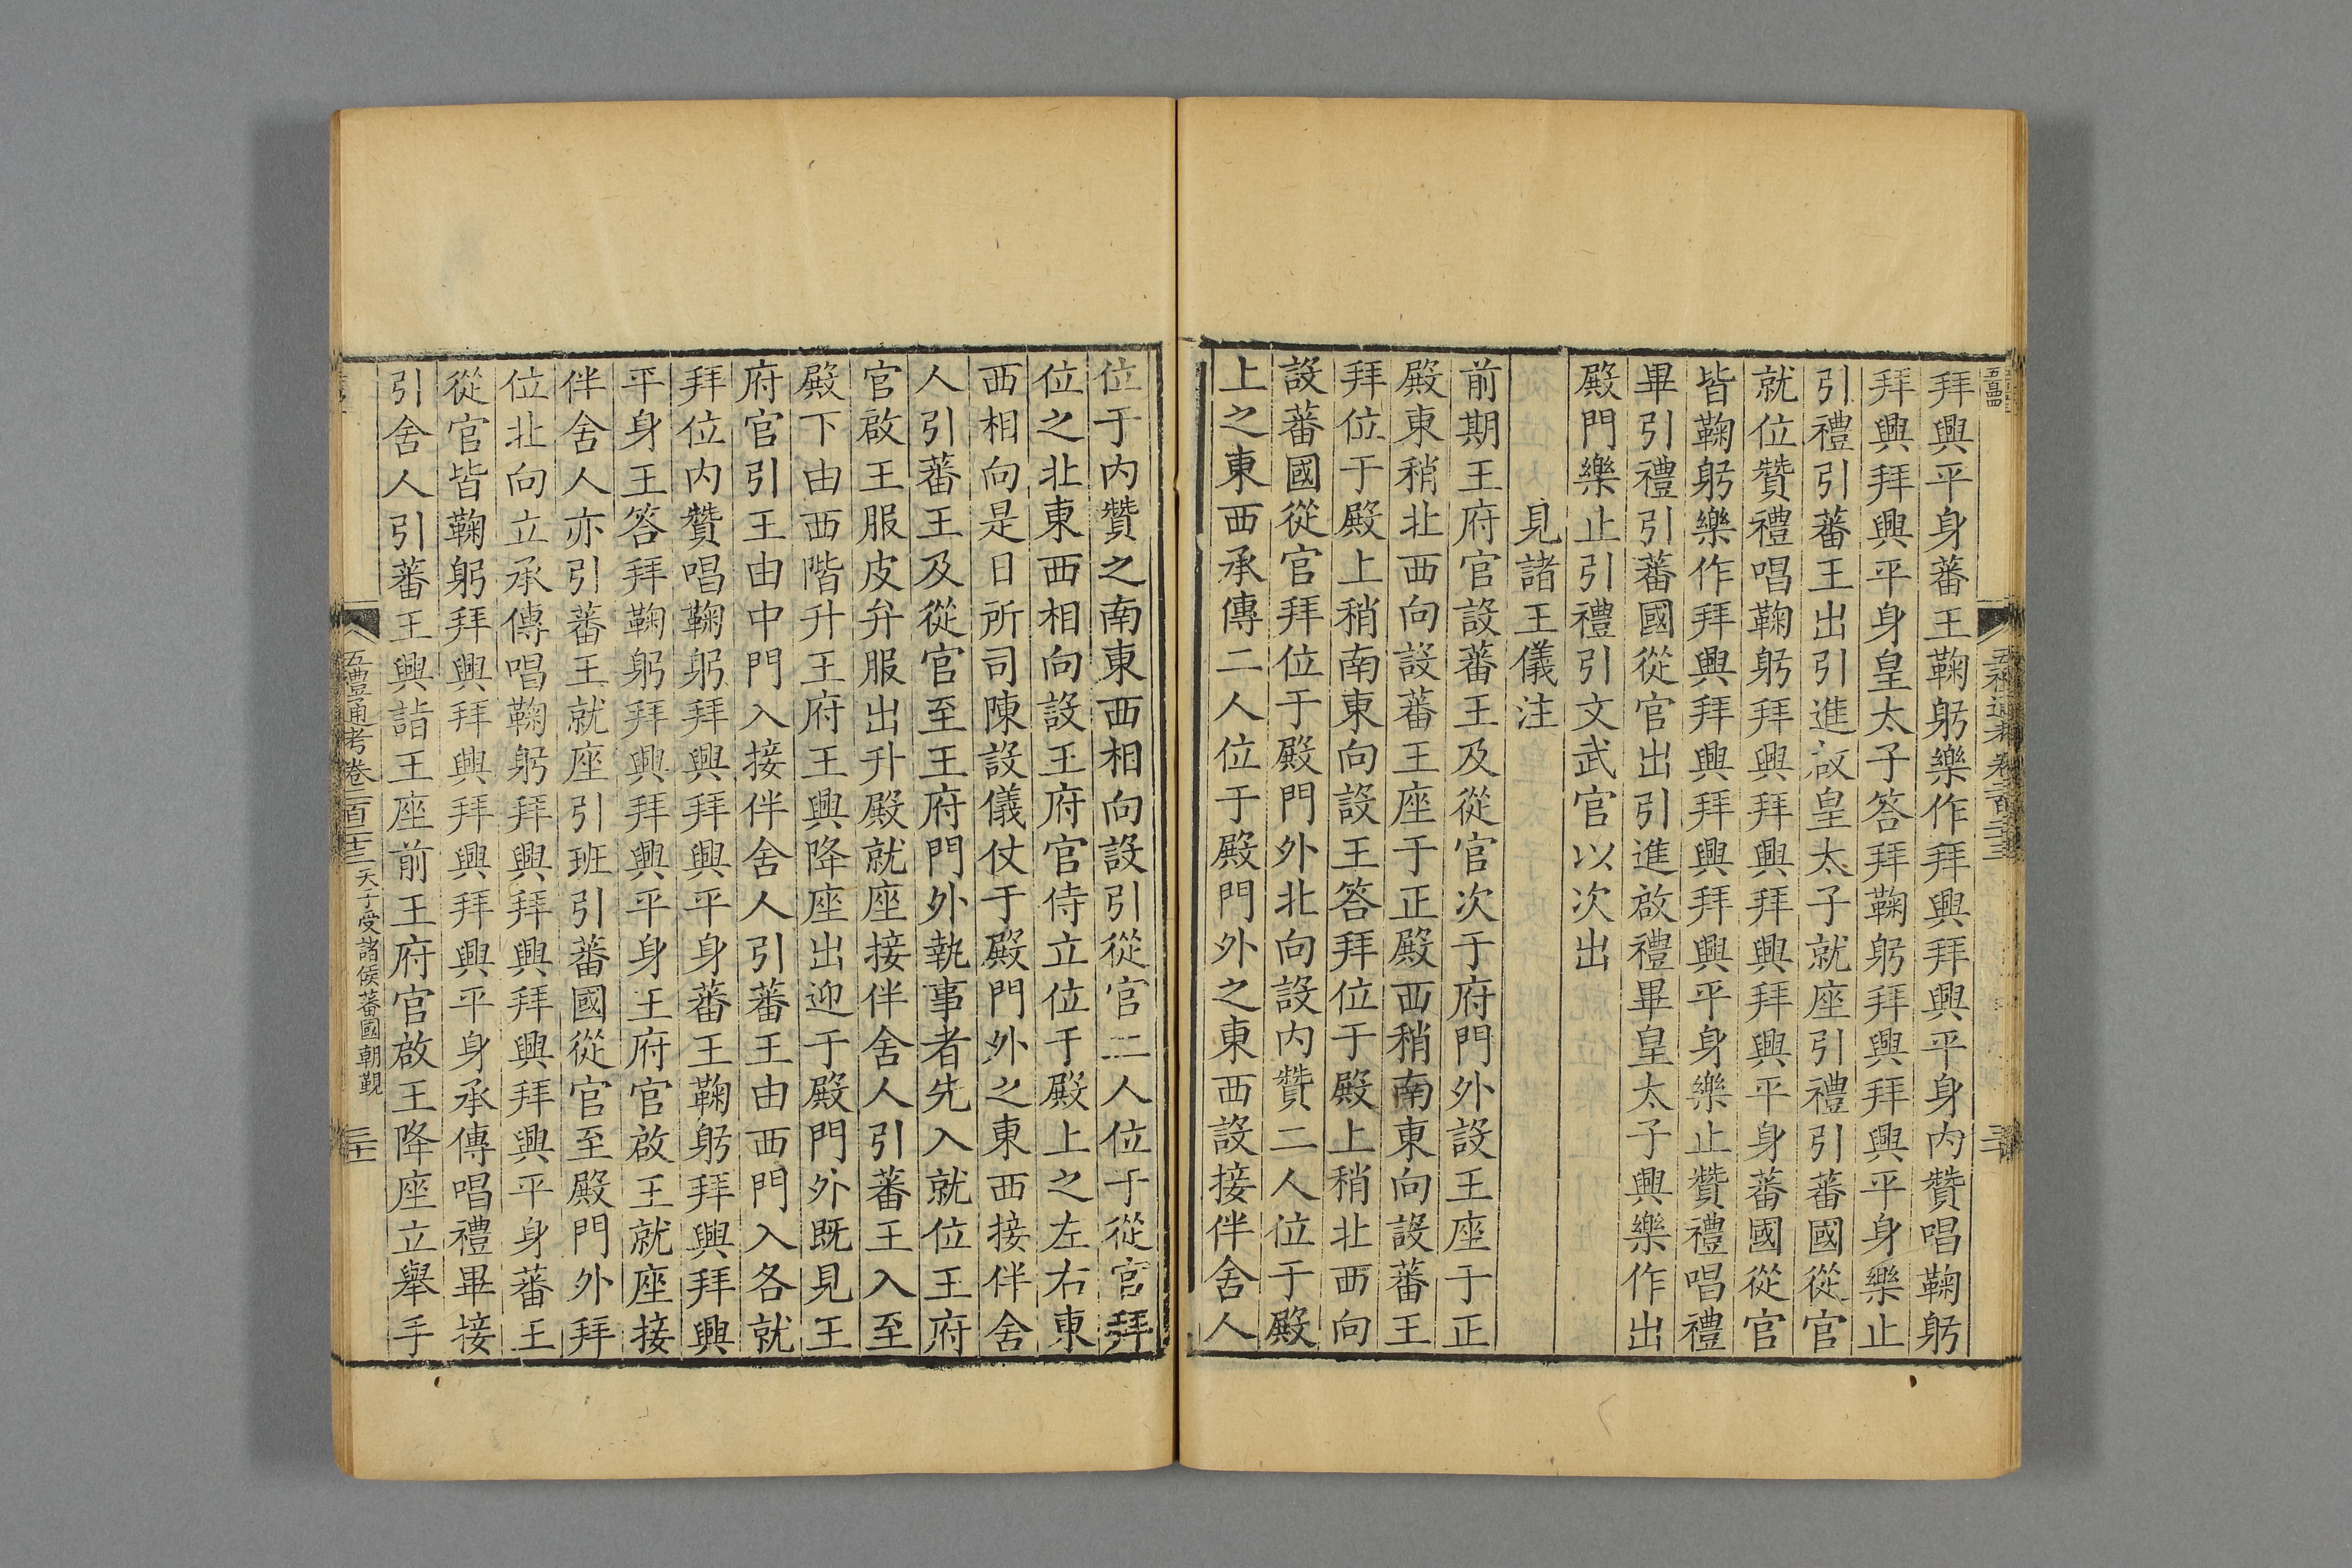 拜興平身蕃王鞠躬樂作拜興拜興平身内贊唱鞠躬
拜興拜興平身皇太子答拜鞠躬拜興拜興平身樂止
引禮引蕃王出引進啟皇太子就座引禮引蕃國從官
就位贊禮唱鞠躬拜興拜興拜興拜興平身蕃國從官
皆鞠躬樂作拜興拜興拜興拜興平身樂止贊禮唱禮
畢引禮引蕃國從官出引進啟禮畢皇太子興樂作出
殿門樂止引禮引文武官以次出
見諸王儀注
前期王府官設蕃王及從官次于府門外設王座于正
殿東稍北西向設蕃王座于正殿西稍南東向設蕃王
拜位于殿上稍南東向設王答拜位于殿上稍北西向
設蕃國從官拜位于殿門外北向設内贊二人位于殿
上之東西承傳二人位于殿門外之東西設接伴舍人
位于内贊之南東西相向設引從官二人位于從官拜
位之北東西相向設王府官侍立位于殿上之左右東
西相向是日所司陳設儀仗于殿門外之東西接伴舍
人引蕃王及從官至王府門外執事者先入就位王府
官啟王服皮弁服出升殿就座接伴舍人引蕃王入至
殿下由西階升王府王興降座出迎于殿門外既見王
府官引王由中門入接伴舍人引蕃王由西門入各就
拜位内贊唱鞠躬拜興拜興平身蕃王鞠躬拜興拜興
平身王答拜鞠躬拜興拜興平身王府官啟王就座接
伴舍人亦引蕃王就座引班引蕃國從官至殿門外拜
位北向立承傳唱鞠躬拜興拜興拜興拜興平身蕃王
從官皆鞠躬拜興拜興拜興拜興平身承傳唱禮畢接
引舍人引蕃王興詣王座前王府官啟王降座立舉手
五禮通考卷二百二十三 天子受諸侯蕃國朝覲 三十一